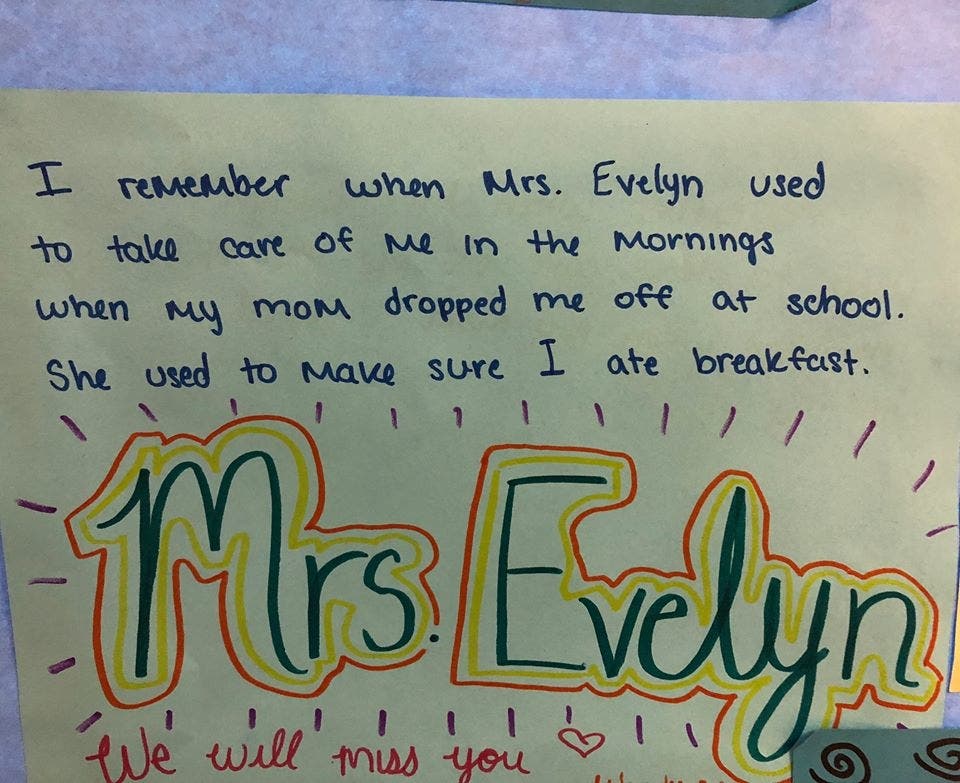 I remember when Mrs. Evelyn used
to take care of me in the mornings
when my mom dropped me off at school.
She used to make sure I ate breakfast.
Mrs. Evelyn
We will miss you